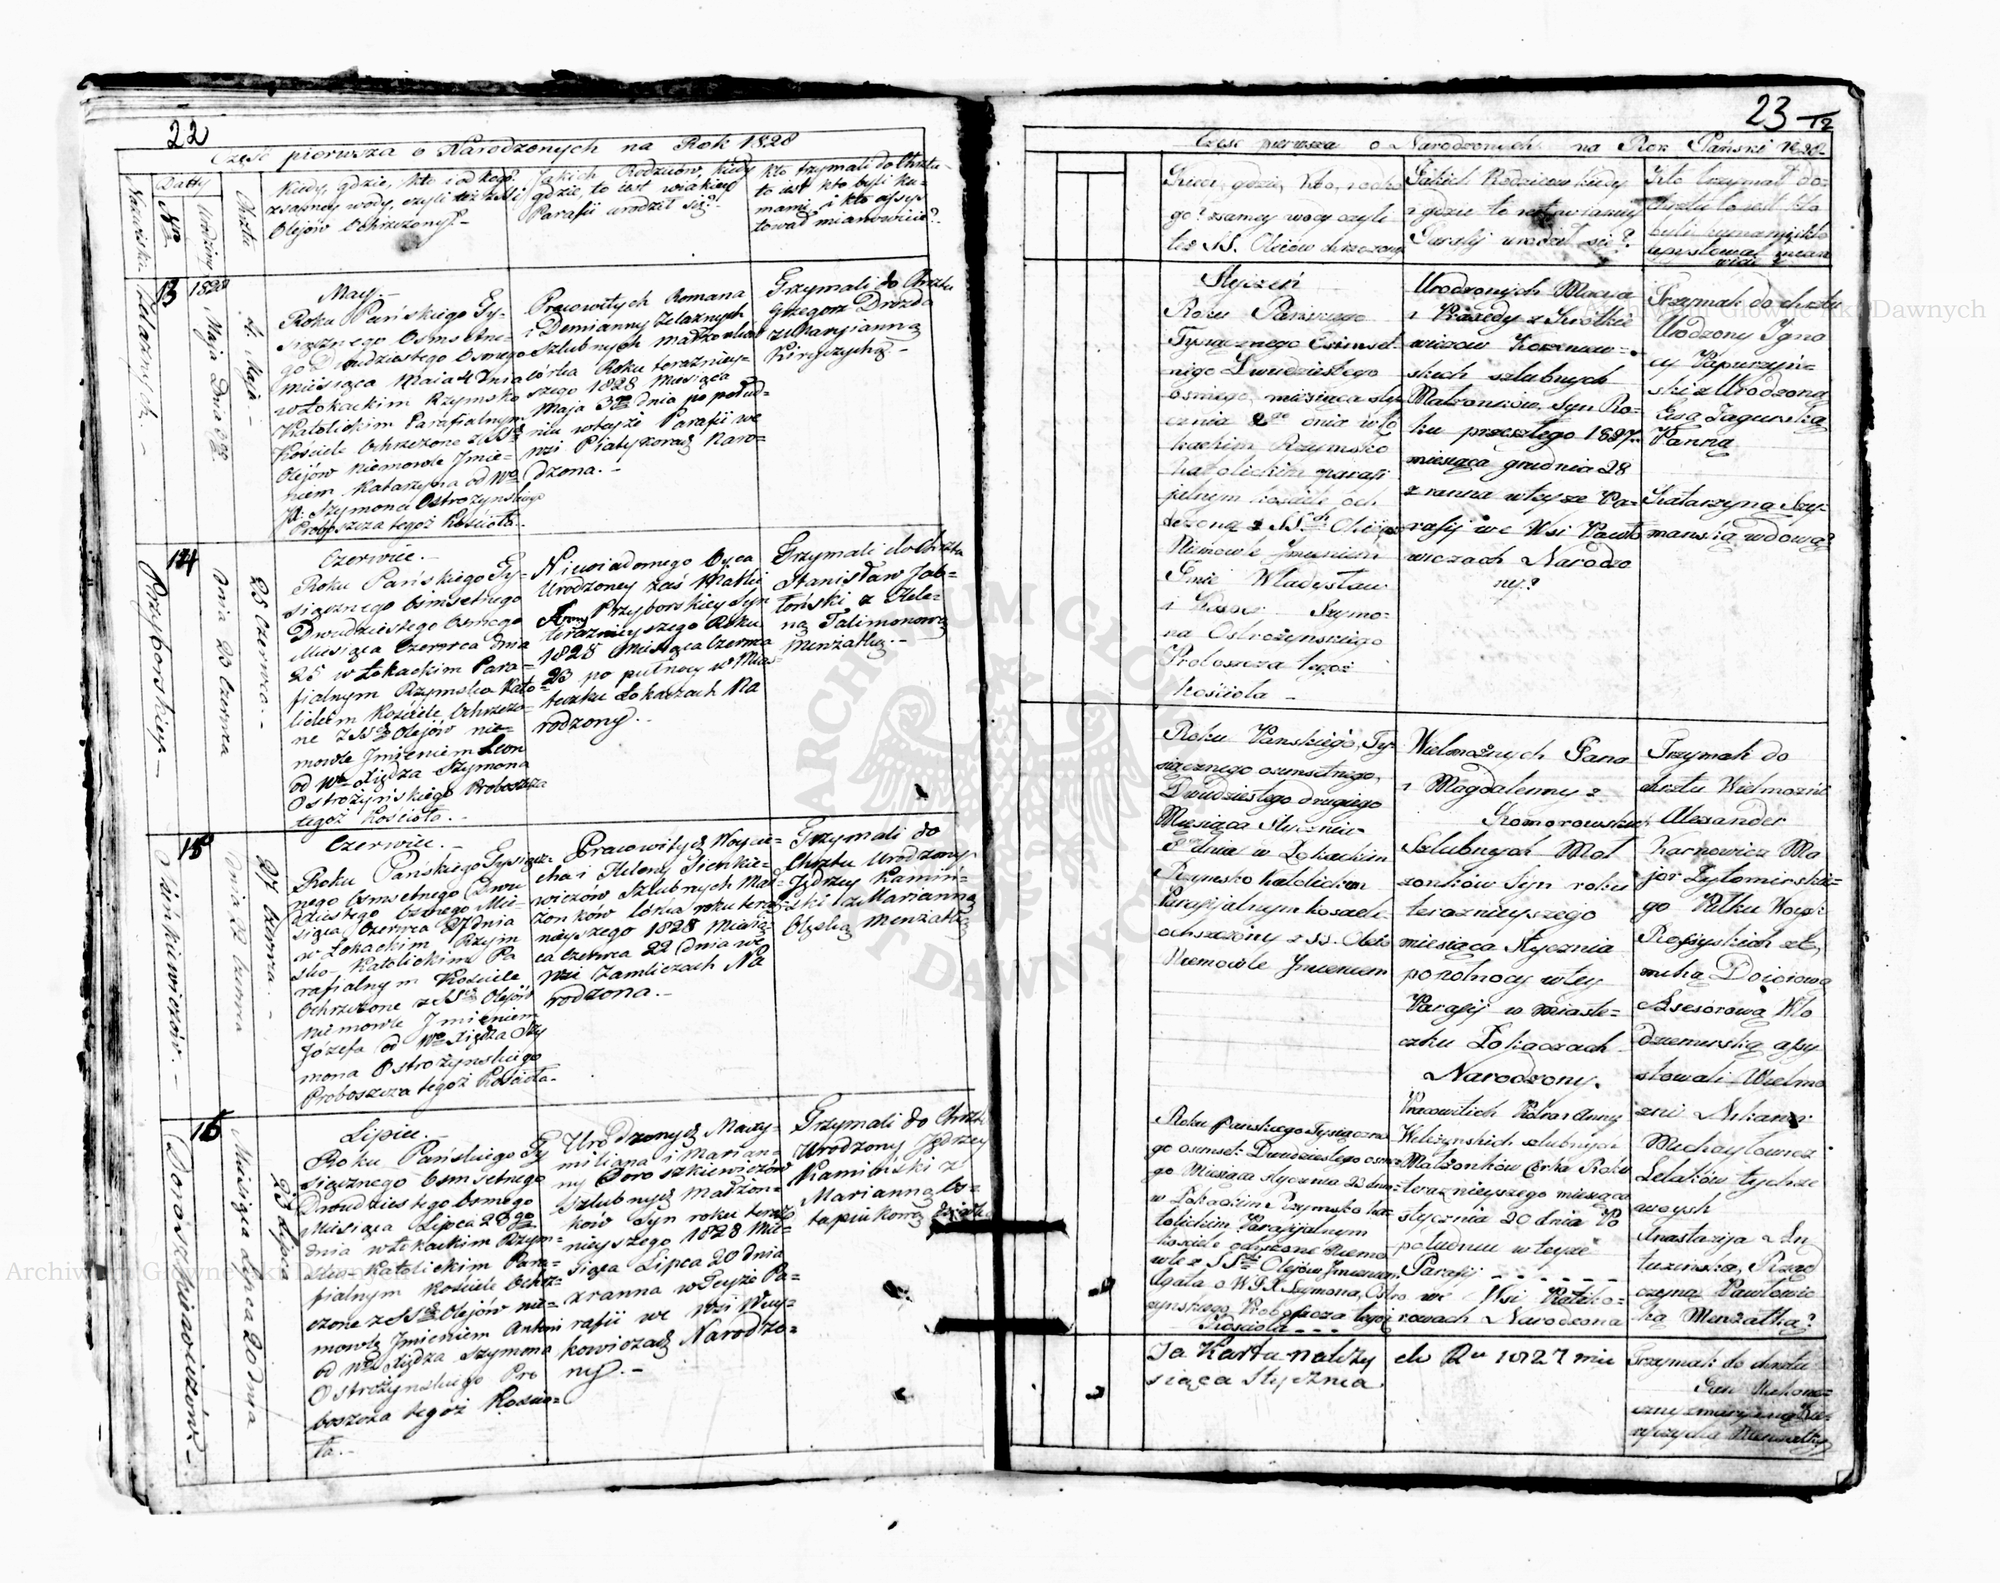 22
Część pierwsza o Narodzonych na Rok 1828
Nazwiska
Datty
Nro
Urodziny
Chrztu
Kiedy, gdzie, kto i od kogo?
z samey wody, czyli też z SS.
Olejów Ochrzczony?-
Jakich Rodziców, kiedy
gdzie, to iest w iakiey
Parafii urodził się?
kto trzymali do Chrztu
to iest kto byli ku-
mami, i kto assys-
tował mianowicie?
13
Żelaznych.-
1828 Maja Dnia
4. Maja.-
May.-
Roku Pańskiego Ty-
siącznego Osmsetne-
go Dwudziestego Osmego
miesiąca Maia 4 Dnia
w Łokackim Rzymsko
Katolickim Parafialnym
Kościele Ochrzczone z SSch
Olejów Niemowle Jmie-
niem Katarzyna od Wo
Jx: Szymona Ostrożynskiego
Proboszcza tegoż Kościoła.-
Pracowitych Romana
i Demianny Żelaznych
Szlubnych Małżonków
córka Roku teraźniey-
szego 1828 Miesiąca
Maja 3go dnia po połud-
niu w tejże Parafii we
wsi Naro-
dzona.-
Trzymali do Chrztu
Grzegorz Drozda
z Maryianną
Kiryczychą.-
14
Przyborskiey.-
Dnia 23 Czerwca
25 Czerwca.-
Czerwiec.-
Roku Pańskiego Ty-
siącznego Osmsetnego
Dwudziestego Osmego
Miesiąca Czerwca Dnia
25 w Łokackim Para-
fialnym Rzymsko Kato-
lickim Kościele Ochrzczo-
ne z SSch Olejów nie-
mowle Jmieniem Leon
od Wo Xiędza Szymona
Ostrożyńskiego Proboszcza
tegoż Kościoła.-
Niewiadomego Oyca
Urodzoney zaś Matki
Anny Przyborskiey Syn
teraźnieyszego Roku
1828 Miesiąca Czerwca
23 po pułnocy w Mias-
teczku Łokaczach Na
rodzony.-
Trzymali do Chrztu
Stanisław Jab-
łoński z Hele-
ną Talimonową
Menżatką.-
15
Sieńkiewiczów.-
Dnia 22 Czerwca
27 Czerwca.-
Czerwiec.-
Roku Pańskiego Tysiącz-
nego Osmsetnego Dwu
dziestego Osmego Mie-
siąca Czerwca 27 dnia
w Łokackim Rzym
sko Katolickim Pa
rafialnym Kościele
Ochrzczone z SSch Olejów
niemowle Jmieniem
Józefa od Wo Xiędza Szy
mona Ostrożynskiego
Proboszcza tegoż Kościoła.-
Pracowitych Woycie-
cha i Heleny Sienkie-
wiczów Szlubnych Mał-
żonków córka roku teraź-
nieyszego 1828 Miesią-
ca Czerwca 22 Dnia we
wsi Zamliczach Na
rodzona.-
Trzymali do
Chrztu Urodzony
Jędrzey Kamiń-
ski z Marianną
Menżatką
16
Doroszkiewiczów.-
Miesiąca Lipca 20 Dnia
23 Lipca
Lipiec.-
Roku Pańskiego Ty
siącznego Osmsetnego
Dwudziestego Osmego
Miesiąca Lipca 23go
dnia w Łokackim Rzym-
sko Katolickim Para-
fialnym Kościele Ochrz-
czone z SSch Olejów nie-
mowle Jmieniem Antoni
od Wo Xiędza Szymona
Ostrożyńskiego Pro
boszcza tegoż Kościo-
ła.-
Urodzonych Maxy-
miliana i Marian-
ny Doroszkiewiczów
Szlubnych Małżon-
ków Syn roku teraź-
nieyszego 1828 Mie-
siąca Lipca 20 dnia
z ranna w Teyże Pa-
rafii we wsi
Narodzo-
ny.-
Trzymali do Chrztu
Urodzony Jędrzey
Kamiński z
Marianną
23
12
Część pierwsza o Narodzonych na Rok Pański 1828
Kiedy, gdzie, kto, od ko-
go? z samey wody czyli
też SS. Oleiów chrzczony
Jakich Rodziców kiedy
i gdzie to iest w iakiey
Parafij urodził się?
Kto trzymał do
chrztu to iest kto
byli kumami, i kto
assystował mian
wicie?
Styczeń
Roku Panskiego
Tysiącznego Osmset-
nego Dwudziestego
osmego, miesiąca sty-
cznia 2go dnia w Ło
kackim Rzymsko
Katolickim parafi
jalnym kościele och
rzczone z SSch Oleiów
Niemowle Jmieniem
Władysław
Szymo-
na Ostrożynskiego
Proboszcza tegoż
kościoła -
Urodzonych Macieja
skich szlubnych
Małżonków, Syn Ro-
ku przeszłego 1827
miesiąca grudnia 28
z ranna w tejże Pa-
rafij we Wsi Pawło
wiczach Narodzo
ny?
Trzymali do chrztu
Urodzony Igna
cy
ski z Urodzoną
Ewą Jagurską
Panną
Katarzyną Szy-
manską wdową?
Roku Panskiego, Ty-
siącznego osmsetnego,
Dwudziestego drugiego
Miesiąca Stycznia
8 dnia w Łokackim
Rzymsko Katolickim
Parafijalnym kosciele
ochrzczony z SS. Oleió
Niemowle Jmieniem
Wielmożnych Jana
i Magdaleny z
Komorowskich
Szlubnych Mał
żonków Syn roku
teraznieyszego
miesiąca Stycznia
po północy w tey
Parafij w miaste-
czku Łokaczach
Narodzony.
Trzymali do
chrztu Wielmożni
Alexander
Karnowicz Ma
jor Żytomirskie-
go Pułku Woysk
Rossyiskich z
Assesorową Wło
dzimirską assy
stowali Wielmo
żni
Roku Panskiego Tysiączne
go osmset: Dwudziestego osme
go Miesiąca Stycznia 23 dnia
w Łokackim Rzymsko Ka-
tolickim Parafijalnym
kościele ochrzczone Niemo
wle z SSch Olejów Jmieniem
Agata o W.J.X. Szymona, Ostro
żynskiego, Proboszcza tegoż
Kościoła - - -
Pracowitych Piotra i Anny
szlubnych
Małżonków Córka Roku
teraznieyszego miesiąca
stycznia 20 dnia Po
południu w teyże
Parafij - - - - - -
we Wsi
Narodzona
Anastazija z
Pawłowic
ką Menżatką?
Ta Karta należy do Ru 1827 mie
siąca Stycznia.
Trzymali do chrztu
Archiwum Główne Akt Dawnych
ARCHIWUM GŁÓWNE AKT DAWNYCH
Archiwum Główne Akt Dawnych